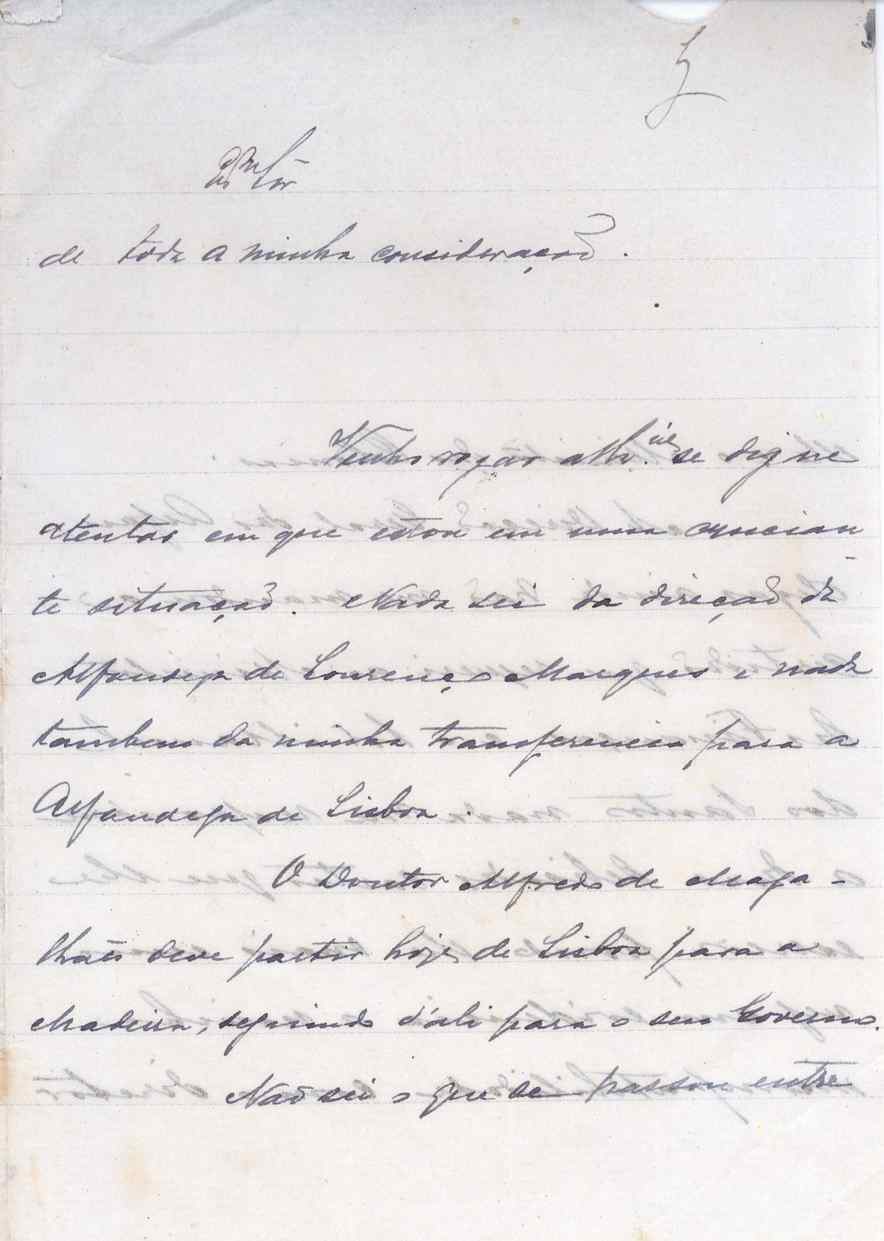 de toda a minha consideração.
Venho rogar a V. se digne
atentar em que estou em uma crucian
te situação. Nada sei da direção da
Alfandega de Lourenço Marques e nada
tambem da minha transferencia para a
Alfandega de Lisboa.
O Doutor Alfredo de Maga-
lhães deve partir hoje de Lisboa para a
Madeira, seguindo d'ali para o seu Governo.
Não sei o que se passou entre